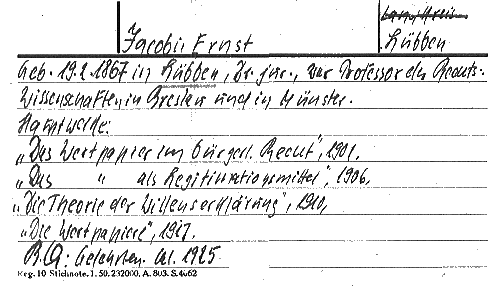 Land/Kreis
Jacobi, Ernst
Lübben
Geb. 19.2.1867 in Lübben, Dr. jur., war Professor der Rechts-
Wissenschaften in Breslau und in Münster.
Hauptwerke:
„Das Wertpapier im bürgerl. Recht", 1901.
„Das " als Legitimationsmittel", 1906,
„Die Theorie der Willenserklärung", 1910,
„Die Wertpapiere", 1917.
Gelehrten. Kal. 1925
Reg. 10 Stichnote. 1. 50. 232000. A. 803. S. 4662